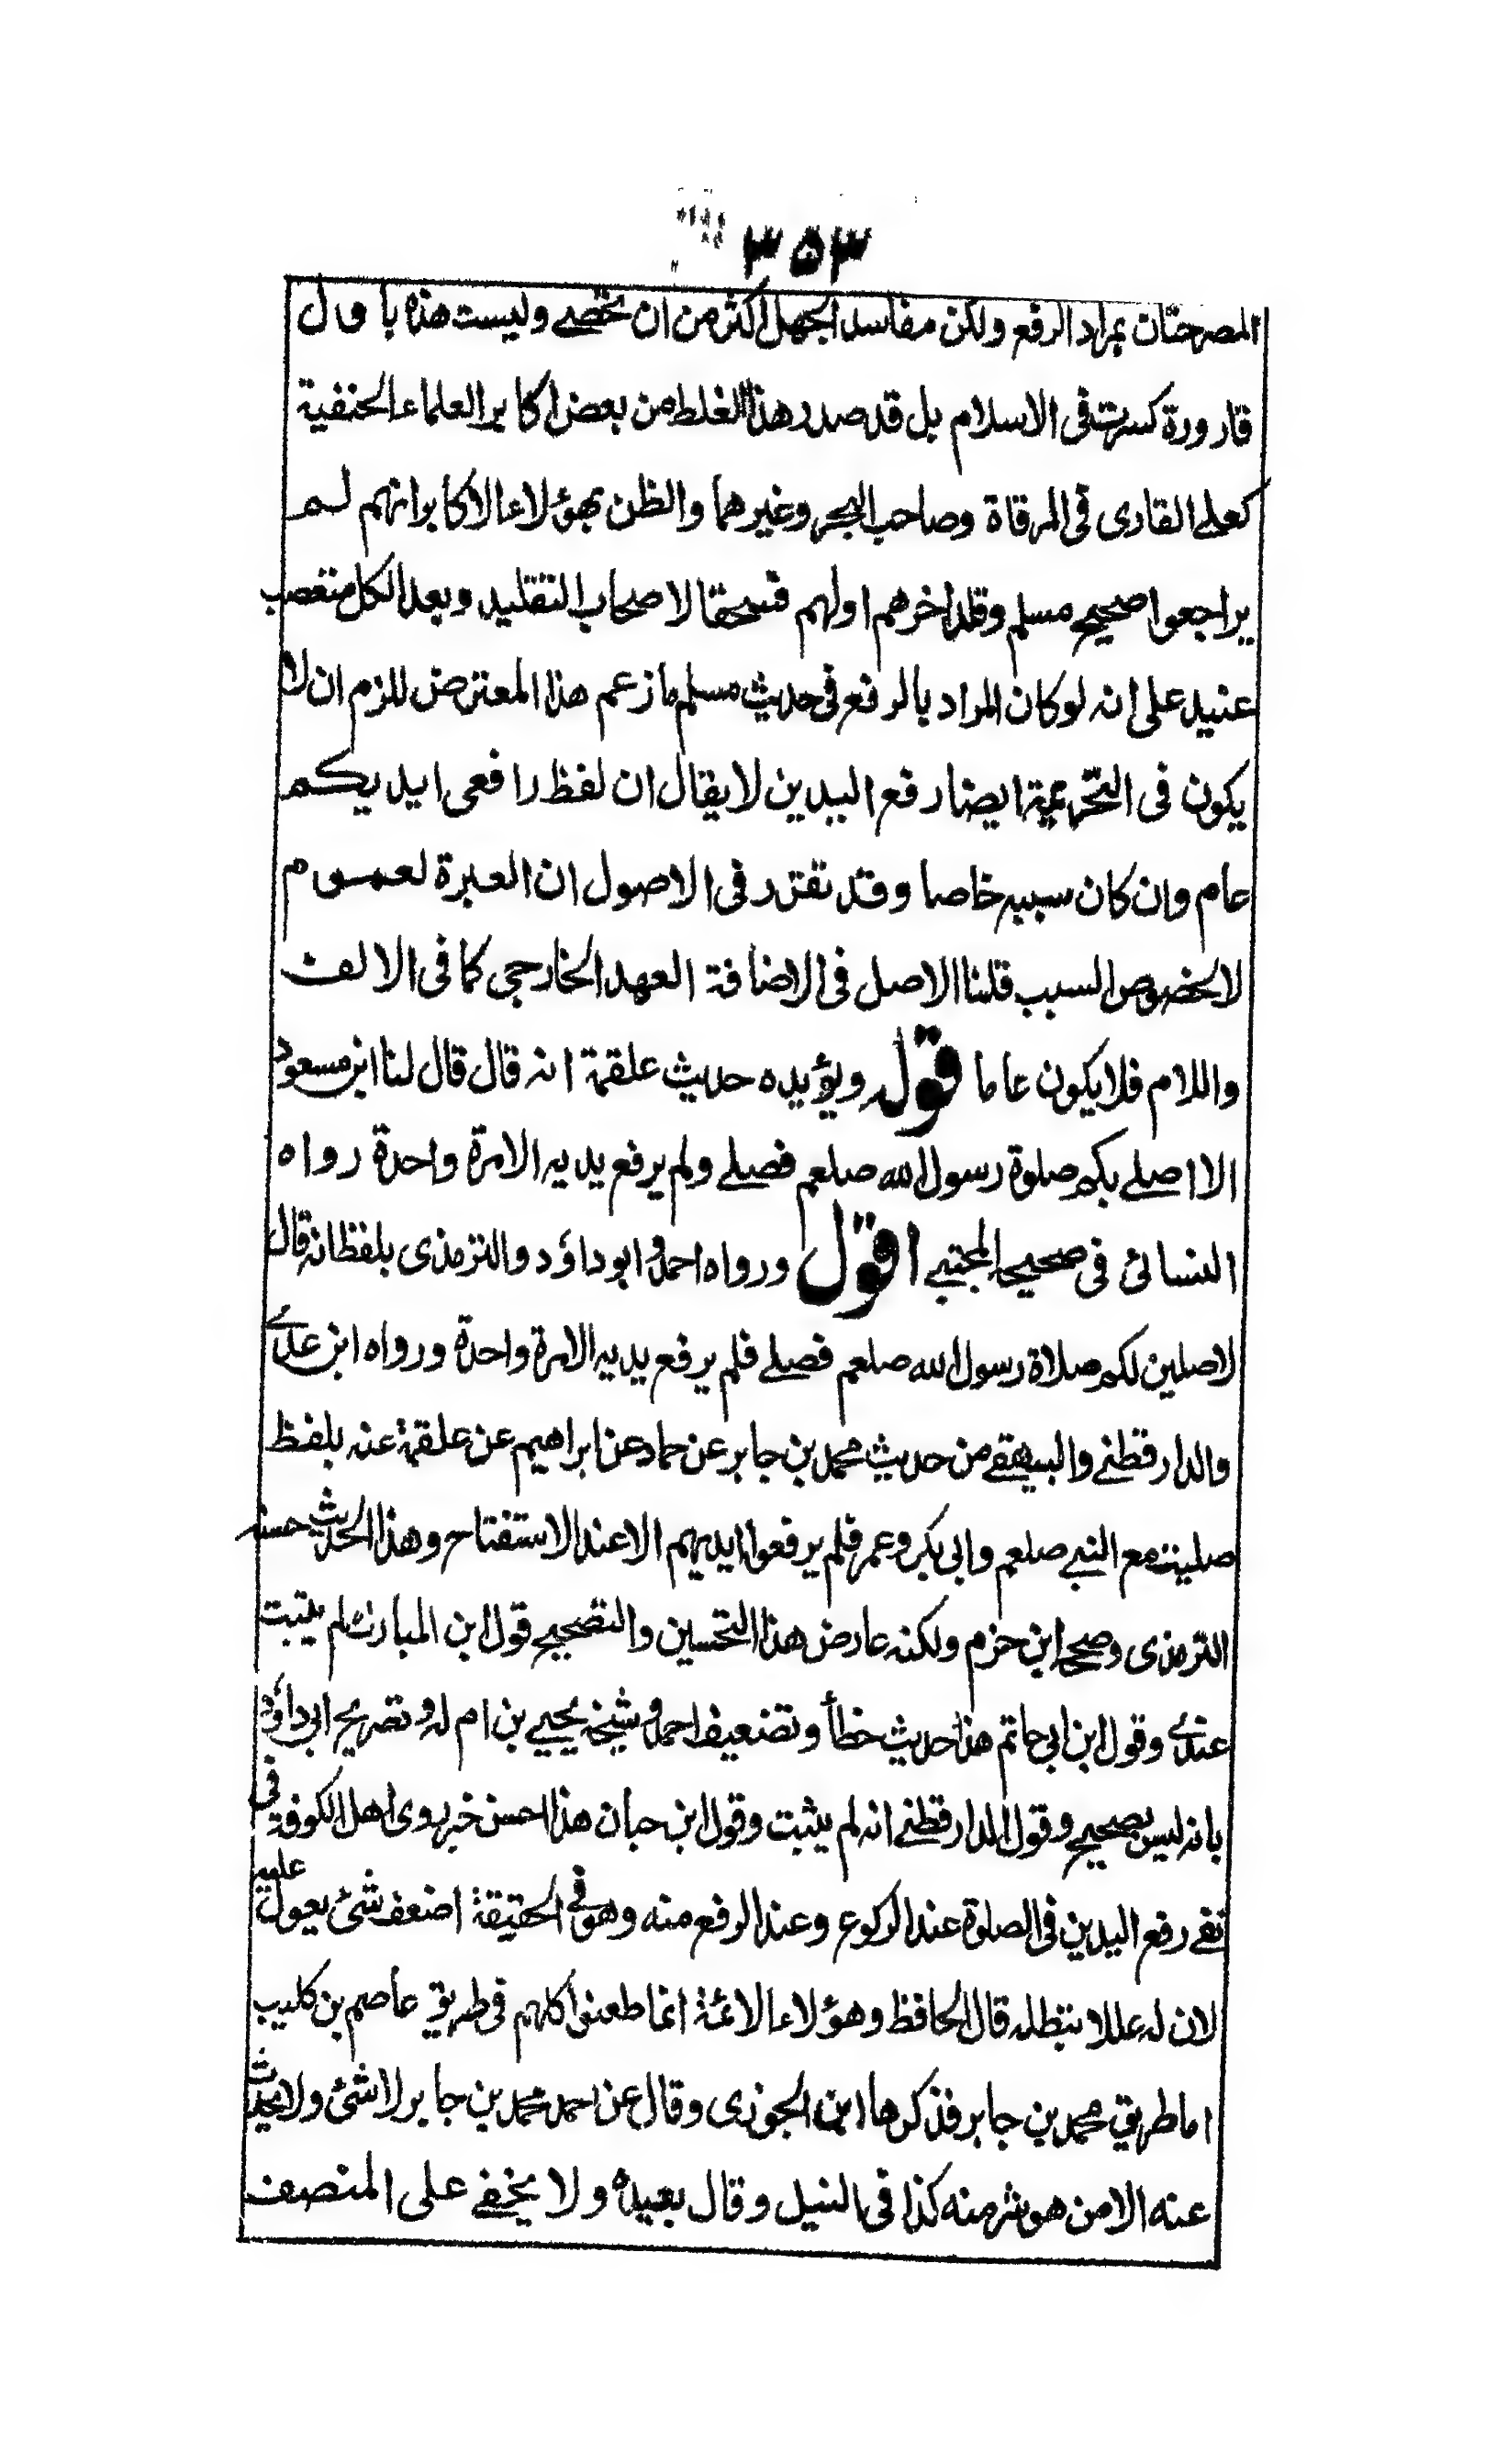 ۳۵۳
المصرحتان بمراد الرفع ولكن مفاسد الجهل اكثر من ان تحصے وليست هذه باول
قارورة كسرت فى الاسلام بل قد صدر هذا الغلط من بعض اكابر العلماء الحنفية
كعلے القارى فى المرقاة وصاحب البحر وغيرهما والظن بهؤلاء الاكابر انهم لم
يراجعوا صحيح مسلم وقلد اخرهم اولهم فسحقا لاصحاب التقليد وبعد الكل متعصب
عنيد على انه لو كان المراد بالرفع فى حديث مسلم ما زعم هذا المعترض للزم ان لا
يكون فى التحريمة ايضا رفع اليدين لا يقال ان لفظ رافعى ايديكم
عام وان كان سببه خاصا وقد تقرر فى الاصول ان العبرة لعموم
لا لخصوص السبب قلنا الاصل فى الاضافة العهد الخارجى كما فى الالف
واللام فلا يكون عاما قوله ويؤيده حديث علقمة انه قال قال لنا ابن مسعود
الا اصلے بكم صلوة رسول الله صلعم فصلے ولم يرفع يديه الا مرة واحدة رواه
النسائى فى صحيحه المجتبے اقول ورواه احمد وابو داؤد والترمذى بلفظ انه قال
لاصلين لكم صلاة رسول الله صلعم فصلے فلم يرفع يديه الا مرة واحدة ورواه ابن عدے
والدارقطنے والبيهقے من حديث محمد بن جابر عن حماد عن ابراهيم عن علقمة عنه بلفظ
صليت مع النبے صلعم وابى بكر وعمر فلم يرفعوا ايديهم الا عند الاستفتاح وهذا الحديث حسنه
الترمذى وصححه ابن حزم ولكنه عارض هذا التحسين والتصحيح قول ابن المبارك لم يثبت
عندے وقول ابن ابى حاتم هذا حديث خطأ وتضعيف احمد وشيخه يحيے بن ادم له وتصريح ابى داؤد
بانه ليس بصحيح وقول الدارقطنے انه لم يثبت وقول ابن حبان هذا احسن خبر روى اهل الكوفة فى
نفے رفع اليدين فى الصلوة عند الركوع وعند الرفع منه وهو فى الحقيقة اضعف شئ يعول عليه
لان له عللا تبطله قال الحافظ وهؤلاء الائمة انما طعنوا كلهم فى طريق عاصم بن كليب
اما طريق محمد بن جابر فذكرها ابن الجوزى وقال عن احمد محمد بن جابر لا شئ ولا يحدث
عنه الا من هو شر منه كذا فى النيل وقال بعيده ولا يخفے على المنصف